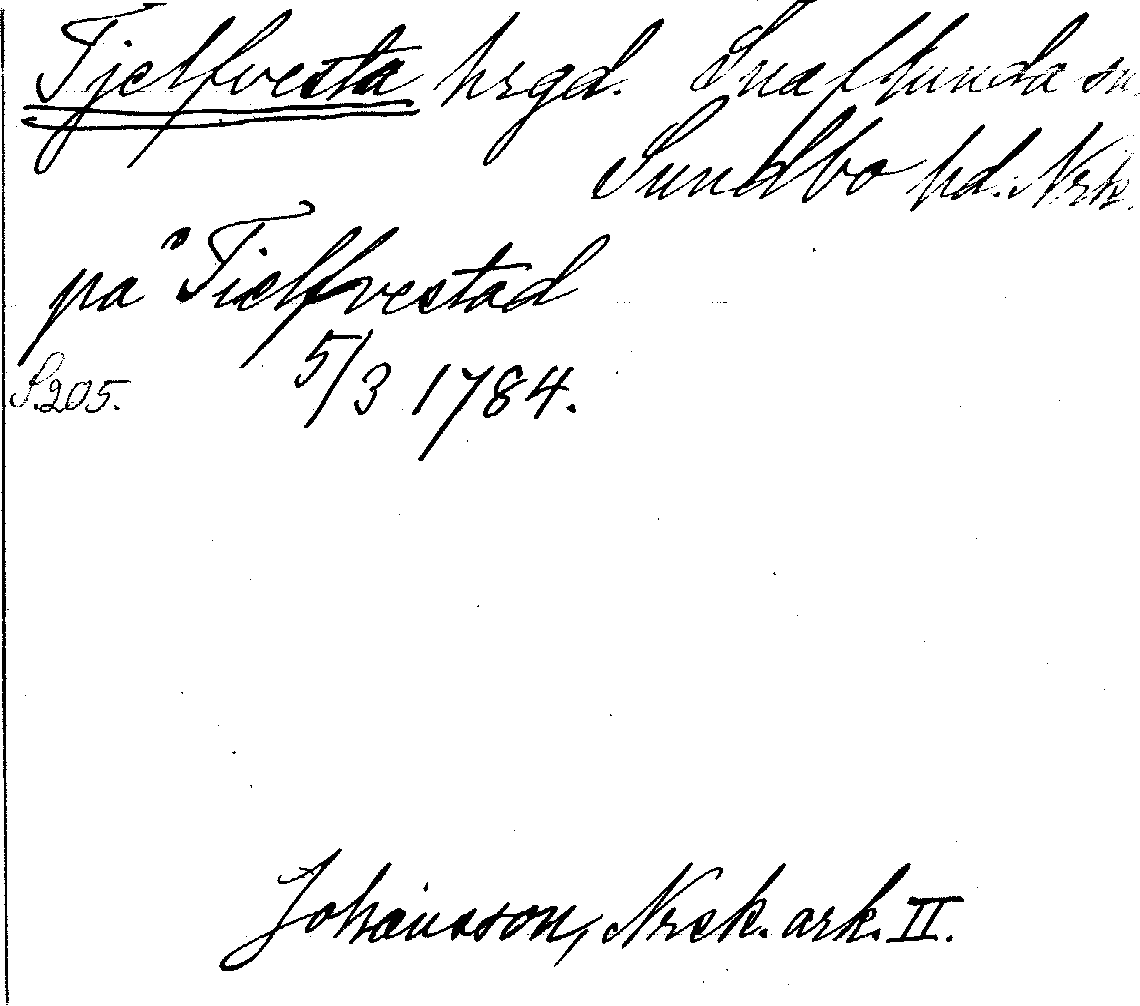 Tjelfvesta hrgd. Snaflunda sn.
Sundbo hd. Nrk.
på Tielfvestad
5/3 1784.
S. 205.
Johansson, Nrsk. ark. II.